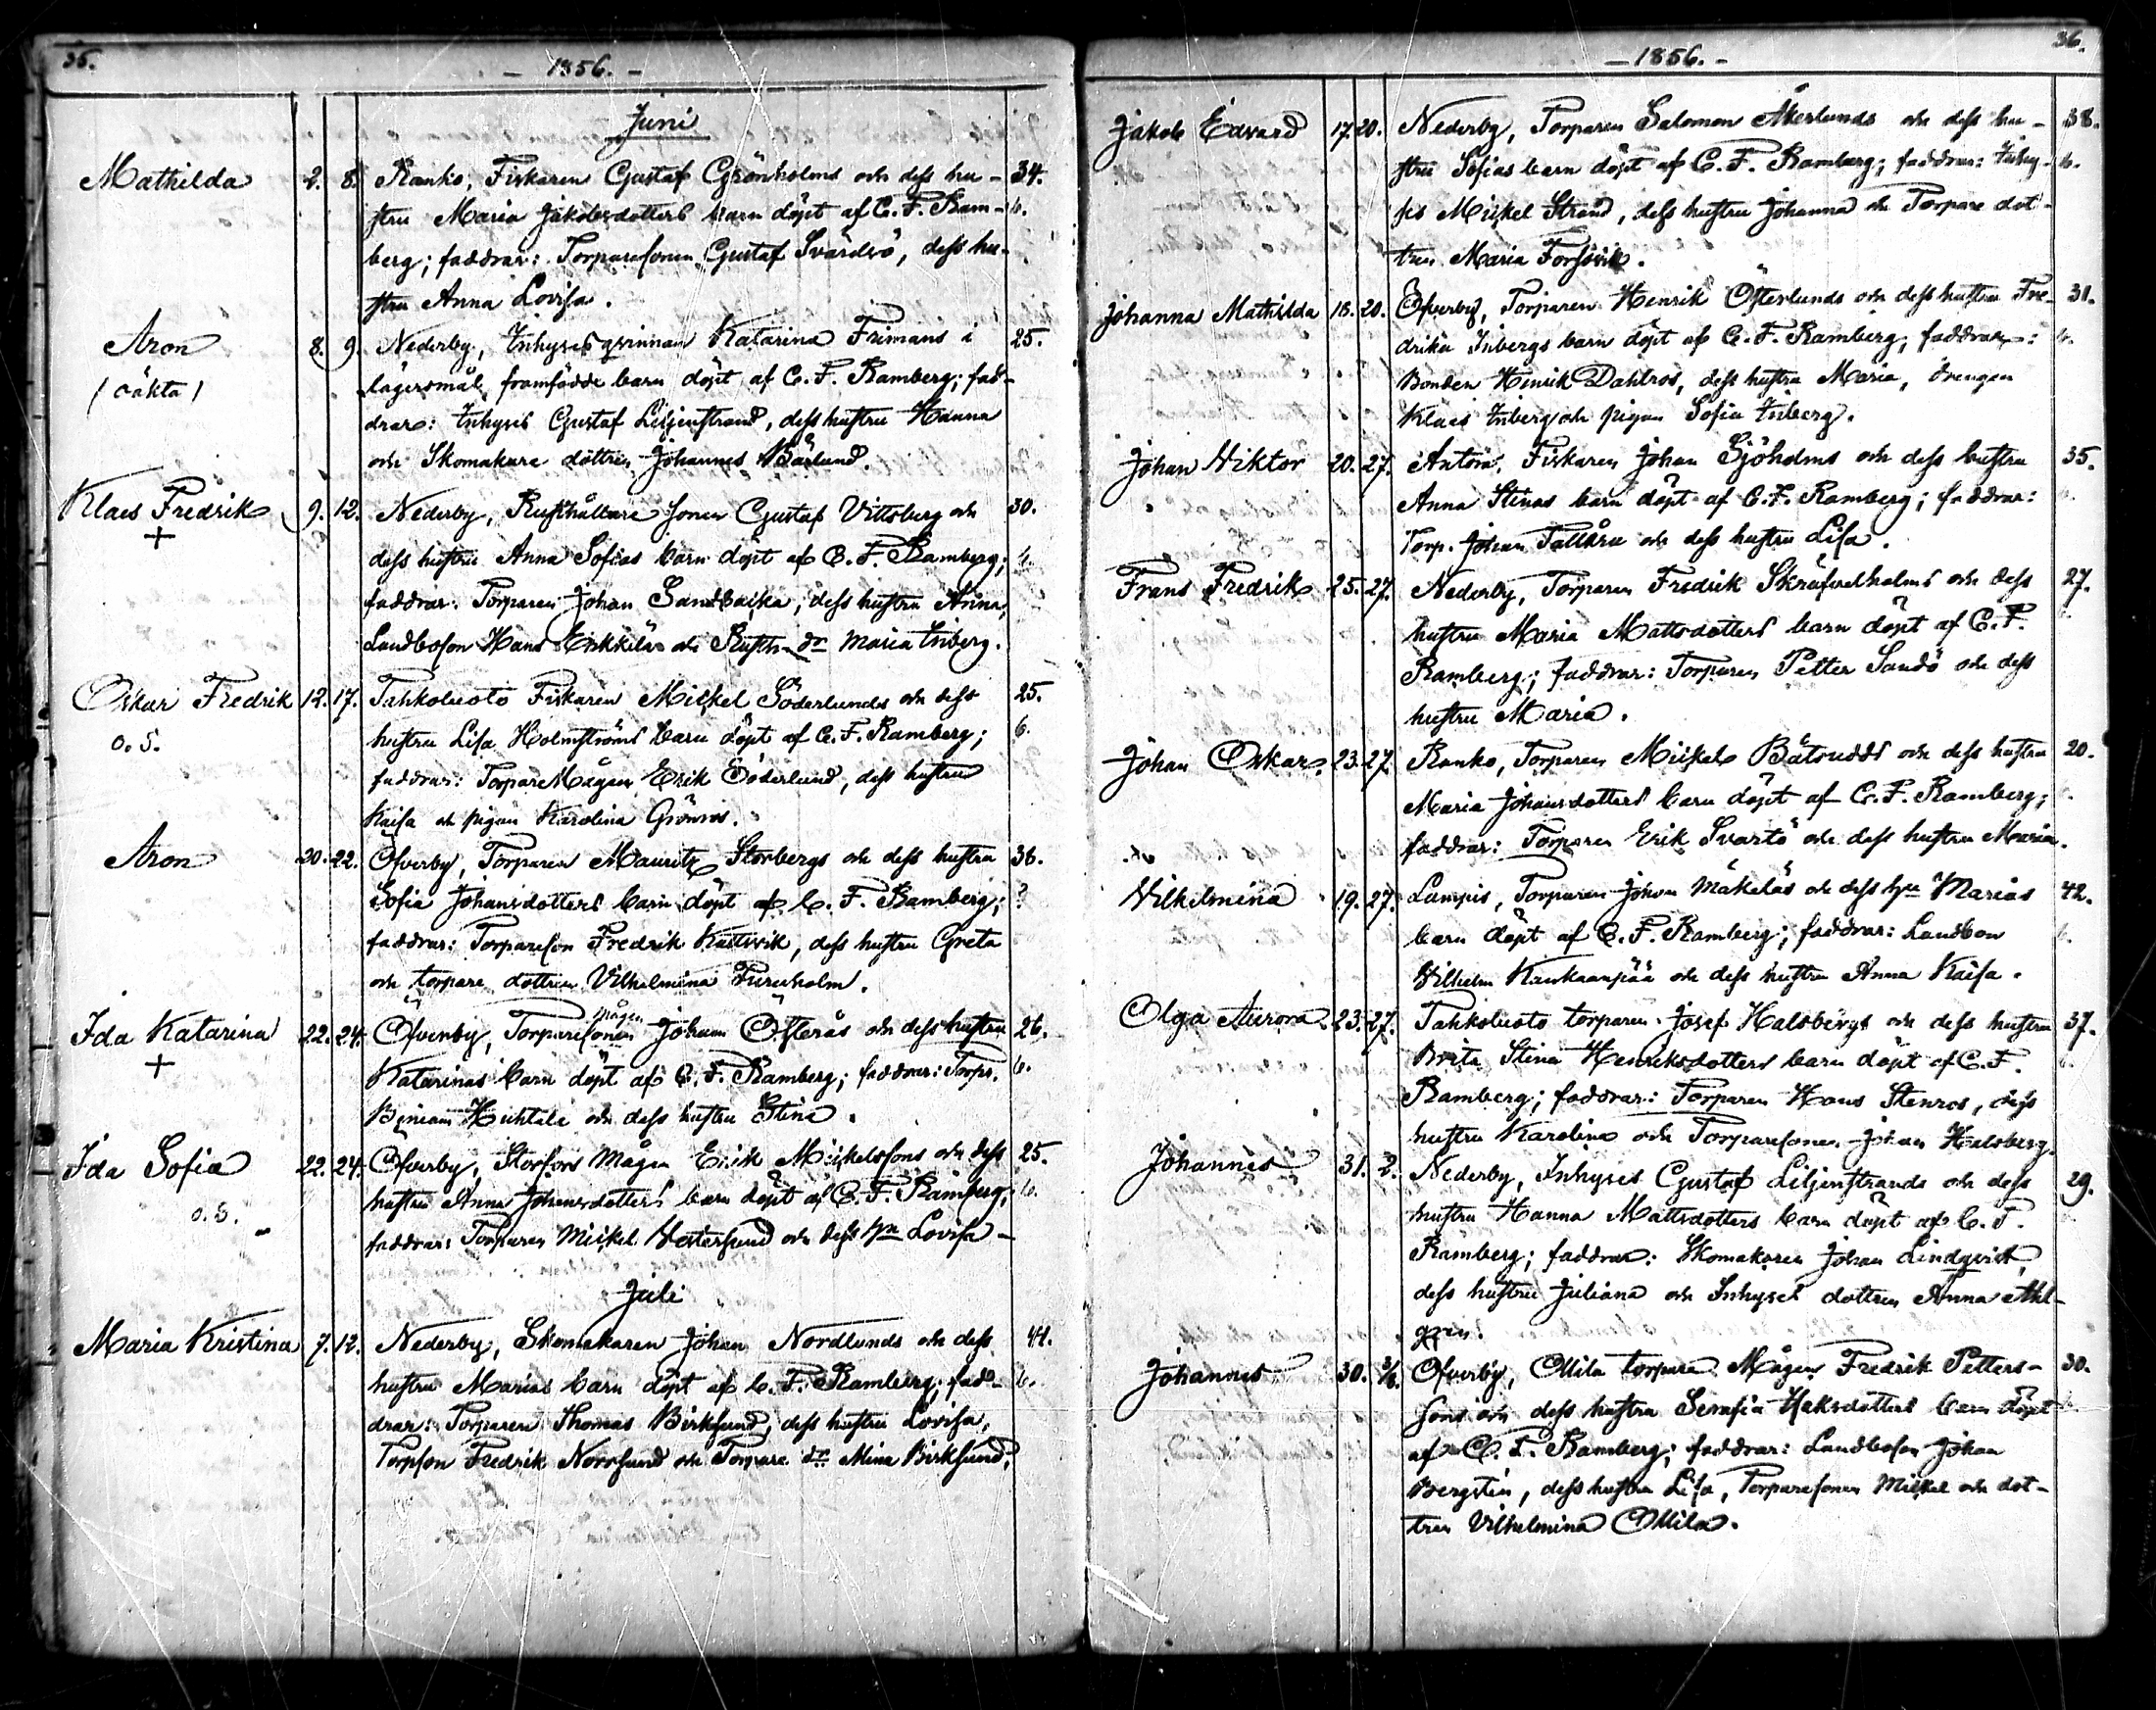 35.
- 1856. -
Juni
Mathilda 2. 8. Ranko, Fiskaren Gustaf Grönholms och dess hu- 34.
stru Maria Jakobsdotters barn döpt af C. F. Ram- 6.
berg; faddrar: Torparesonen Gustaf Svärdsö, dess hu-
stru Anna Lovisa.
Aron 8. 9. Nederby, Inhysesqvinnan Katarina Frimans i 25.
(oäkta) lägersmål framfödde barn döpt af C. F. Ramberg; fad-
drar: Inhyses Gustaf Liljenstrand, dess hustru Hanna
och Skomakare dottren Johannes Bärlund.
Klaes Fredrik 9. 12. Nederby, Rusthållare sonen Gustaf Vittsberg och 30.
+ dess hustru Anna Sofias barn döpt af C. F. Ramberg; 6.
faddrar: Torparen Johan Sandbacka, dess hustru Anna,
Landboson Hans Erkkilä och Rusth. dr Maria Inberg.
Oskar Fredrik 12. 17. Tahkoluoto Fiskaren Mickel Söderlunds och dess 25.
o. S. hustru Lisa Holmströms barn döpt af C. F. Ramberg; 6.
faddrar: TorpareMågen Erik Söderlund, dess hustru
Kaisa och pigan Karolina Grönros.
Aron 20. 22. Öfverby, Torparen Mauritz Storbergs och dess hustru 36.
Sofia Johansdotters barn döpt af C. F. Ramberg; ?
faddrar: Torpareson Fredrik Kastvik, dess hustru Greta
och torpare dottren Vilhelmina Fureholm.
mågen
Ida Katarina 22. 24. Öfverby, Torparesonen Johan Österås och dess hustru 26.
+ Katarinas barn döpt af C. F. Ramberg; faddrar: Torpr. 6.
Benjam Huhtala och dess hustru Stina.
Ida Sofia 22. 24. Öfverby, Storfors Mågen Erik Mickelssons och dess 25.
o. S. hustru Anna Johansdotters barn döpt af C. F. Ramberg; 6.
faddrar: Torparen Mickel Vestersund och dess hu Lovisa -
Juli
Maria Kristina 7. 12. Nederby, Skomakaren Johan Nordlunds och dess 44.
hustru Marias barn döpt af C. F. Ramberg; fad- 6.
drar: Torparen Thomas Birksund, dess hustru Lovisa,
Torpson Fredrik Norrsund och Torpare dr Mina Birksund.
36.
- 1856. -
Jakob Edvard 17. 20. Nederby, Torparen Salomon Åkerlunds och dess hu- 38.
stru Sofias barn döpt af C. F. Ramberg; faddrar: Inhy- 6.
ses Mickel Strand, dess hustru Johanna och Torpare dot-
tren Maria Forssvik.
Johanna Mathilda 18. 20. Öfverby, Torparen Henrik Österlunds och dess hustru Fre- 31.
drika Inbergs barn döpt af C. F. Ramberg; faddrar: 6.
Bonden Henrik Dahlros, dess hustru Maria, drengen
Klaes Inberg och pigan Sofia Inberg.
Johan Viktor 20. 27. Antöra, Fiskaren Johan Sjöholms och dess hustru 35.
Anna Stinas barn döpt af C. F. Ramberg; faddrar:
Torp. Johan Tallåra och dess hustru Lisa.
Frans Fredrik 25. 27. Nederby, Torparen Fredrik Skräfvelholms och dess 27.
hustru Maria Mattsdotters barn döpt af C. F.
Ramberg; faddrar: Torparen Petter Sandö och dess
hustru Maria.
Johan Oskar. 23. 27. Ranko, Torparen Mickels Båtsudds och dess hustru 20.
Maria Johansdotters barn döpt af C. F. Ramberg;
faddrar: Torparen Erik Svartö och dess hustru Maria.
Vilhelmina 19. 27. Lampis, Torparen Johan Mäkeläs och dess hu Marias 42.
barn döpt af C. F. Ramberg; faddrar: Landbon
Vilhelm Kankaanpää och dess hustru Anna Kaisa.
Olga Aurora. 23. 27. Tahkoluoto torparen Josef Halsbergs och dess hustru 37.
Brita Stina Henriksdotters barn döpt af C. F.
Ramberg; faddrar: Torparen Hans Stenros, dess
hustru Karolina och Torparesonen Johan Halsberg.
Johannes 31. 2. Nederby, Inhyses Gustaf Liljenstrands och dess 29.
hustru Hanna Mattsdotters barn döpt af C. F.
Ramberg; faddrar: Skomakaren Johan Lindqvist,
dess hustru Juliana och Inhyses dottren Anna Ahl-
gren.
Johannes 30. 3/8. Öfverby, Ollila torpare Mågen Fredrik Petters- 30.
sons och dess hustru Serafia Isaksdotters barn döpt
af C. F. Ramberg; faddrar: Landboson Johan
Bergsten, dess hustru Lisa, Torparesonen Mickel och dot-
tren Vilhelmina Ollila.